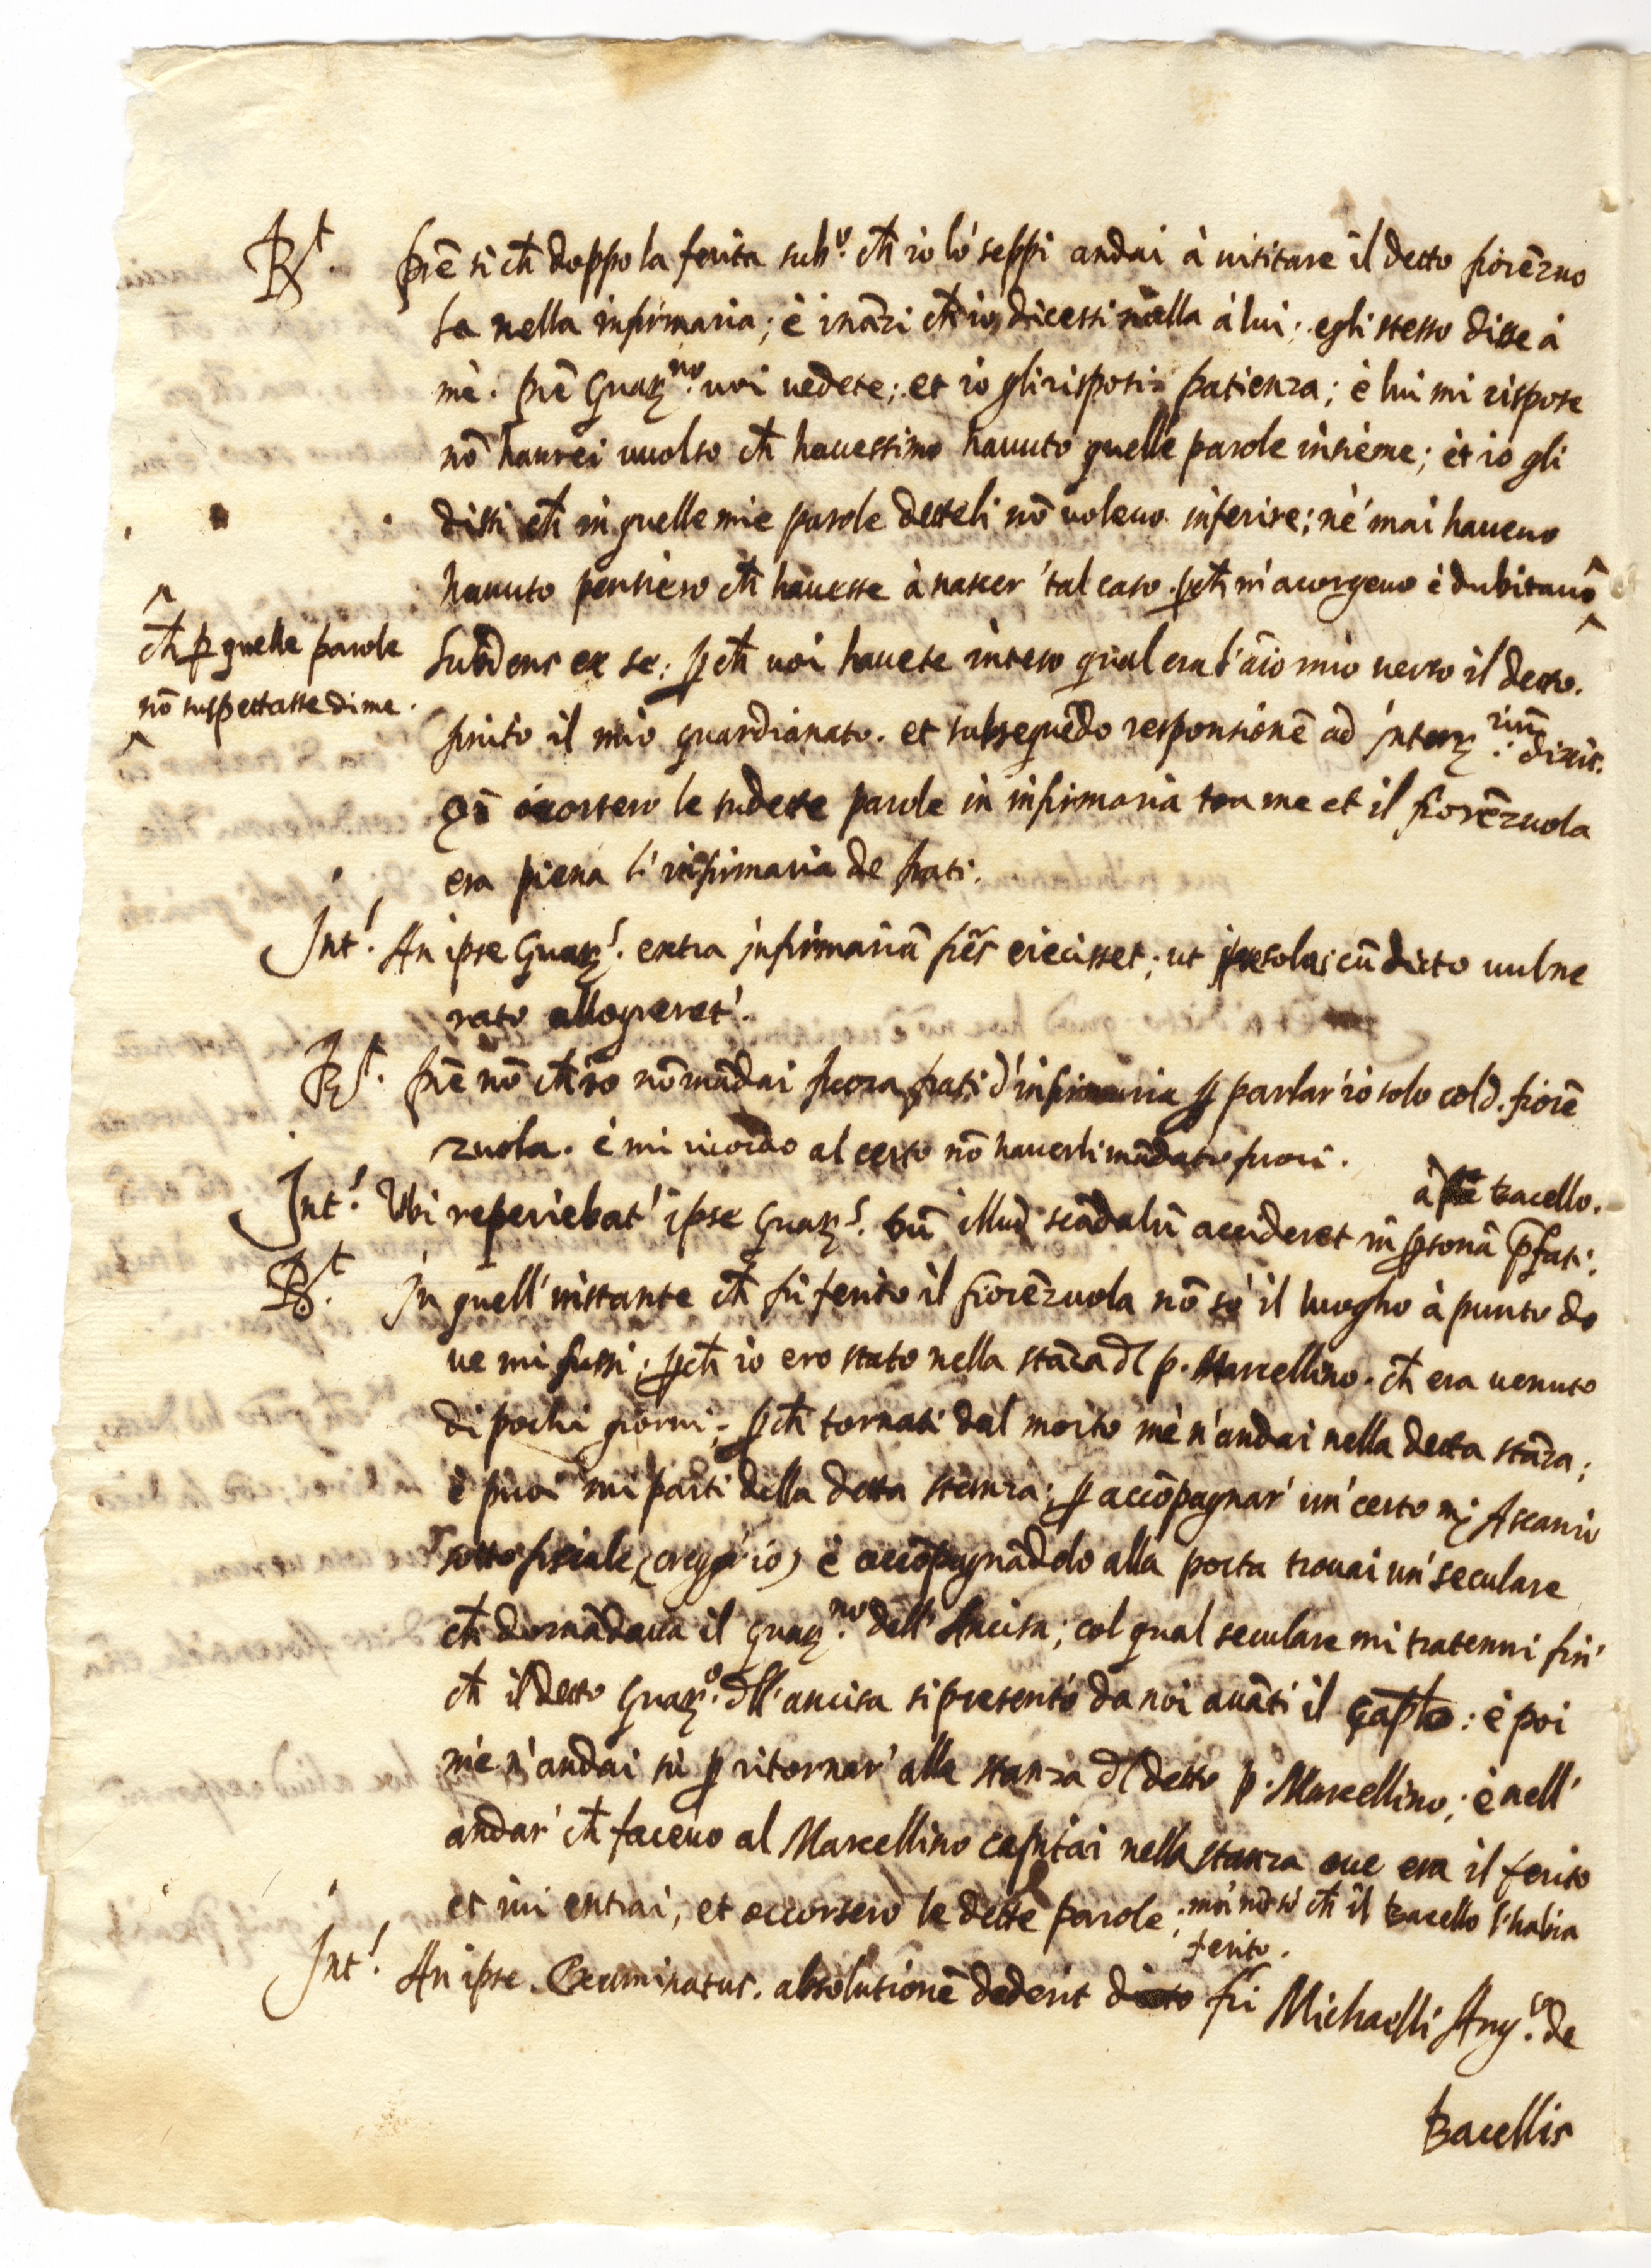 Rt. prē si ch̄ doppo la ferita subo. ch̄ io lo seppi andai à uisitare il detto fiorēzuo
la nella infirmaria; è ināzi ch̄ io dicessi nulla à lui; egli stesso disse à
mè. prē Guarno. uoi uedete; et io gli risposi patienza; è lui mi rispose
nō haurei uuolso ch̄ hauessimo hauuto quelle parole insieme; et io gli
dissi ch̄ in quelle mie parole detteli nō uoleuo inferire; nè mai haueuo
hauuto pensiero ch̄ hauesse à nascer' tal caso. pch̄ m'acorgeuo è dubitauo ^
^
ch̄ p quelle parole
nō suspettasse di me.
^
Subdens ex se: pch̄ uoi hauete inteso qual era l'aīo mio uerso il detto.
finito il mio guardianato. et subsequēdo responsionē ad Interrium. dixit.
Qn̄ occorsero le sudette parole in infirmaria tra me et il fiorēzuola
era piena l'infirmaria de frati.
Int.s An ipse Guars. extra infirmariā frēs eiecisset; ut ipse solus cū dicto uulne
rato alloqueret'.
Rt. prē nō ch̄ io nō mādai fuora frati d'infirmaria p parlar' io solo col d. fiorē
zuola. è mi ricordo al certo nō hauerli mādato fuori.
Int.s Ubi reperiebat' ipse Guars. dū illud scādalū accideret in psonā p̄fati.
à Bacello.
Rt. In quell'instante ch̄ fù ferito il fiorēzuola nō sò il luogho à punto do
ue mi fussi; pch̄ io ero stato nella stāza dl p. Marcellino. ch̄ era uenuto
di pochi giorni; pch̄ tornati dal morto mè n'andai nella detta stāza;
è puoi mi parti della detta stanza; p accōpagnar' un' certo mr Ascanio
sotto fiscale (credo io) è accōpagnādolo alla porta trouai un' seculare
ch̄ domādaua il guarno. dell'Ancisa; col qual seculare mi tratenni fin'
ch̄ il detto Guaro. dll'ancisa si presentò da noi auāti il Caplo: è poi
mè n'andai sù p ritornar' alla stanza dl detto p. Marcellino; è nell'
andar' ch̄ faceuo al Marcellino capitai nella stanza oue era il ferito
et iui entrai, et occorsero le dette parole; mà nō sò ch̄ il Bacello l'habia
ferito.
Int.s An ipse Examinatus. absolutionē dederit fri Michaelli Angco. de
Bacellis